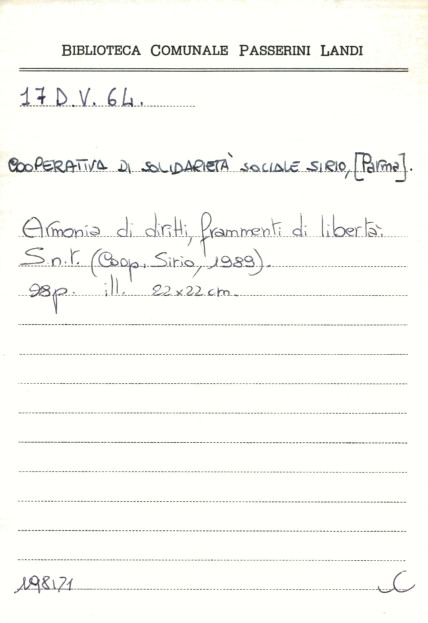 BIBLIOTECA COMUNALE PASSERINI LANDI
17 D.V. 64.
COOPERATIVA DI SOLIDARIETÀ SOCIALE SIRIO, [Parma].
Armonia di diritti, frammenti di libertà.
S.n.t. (Coop. Sirio, 1989).
98p. ill. 22x22 cm.